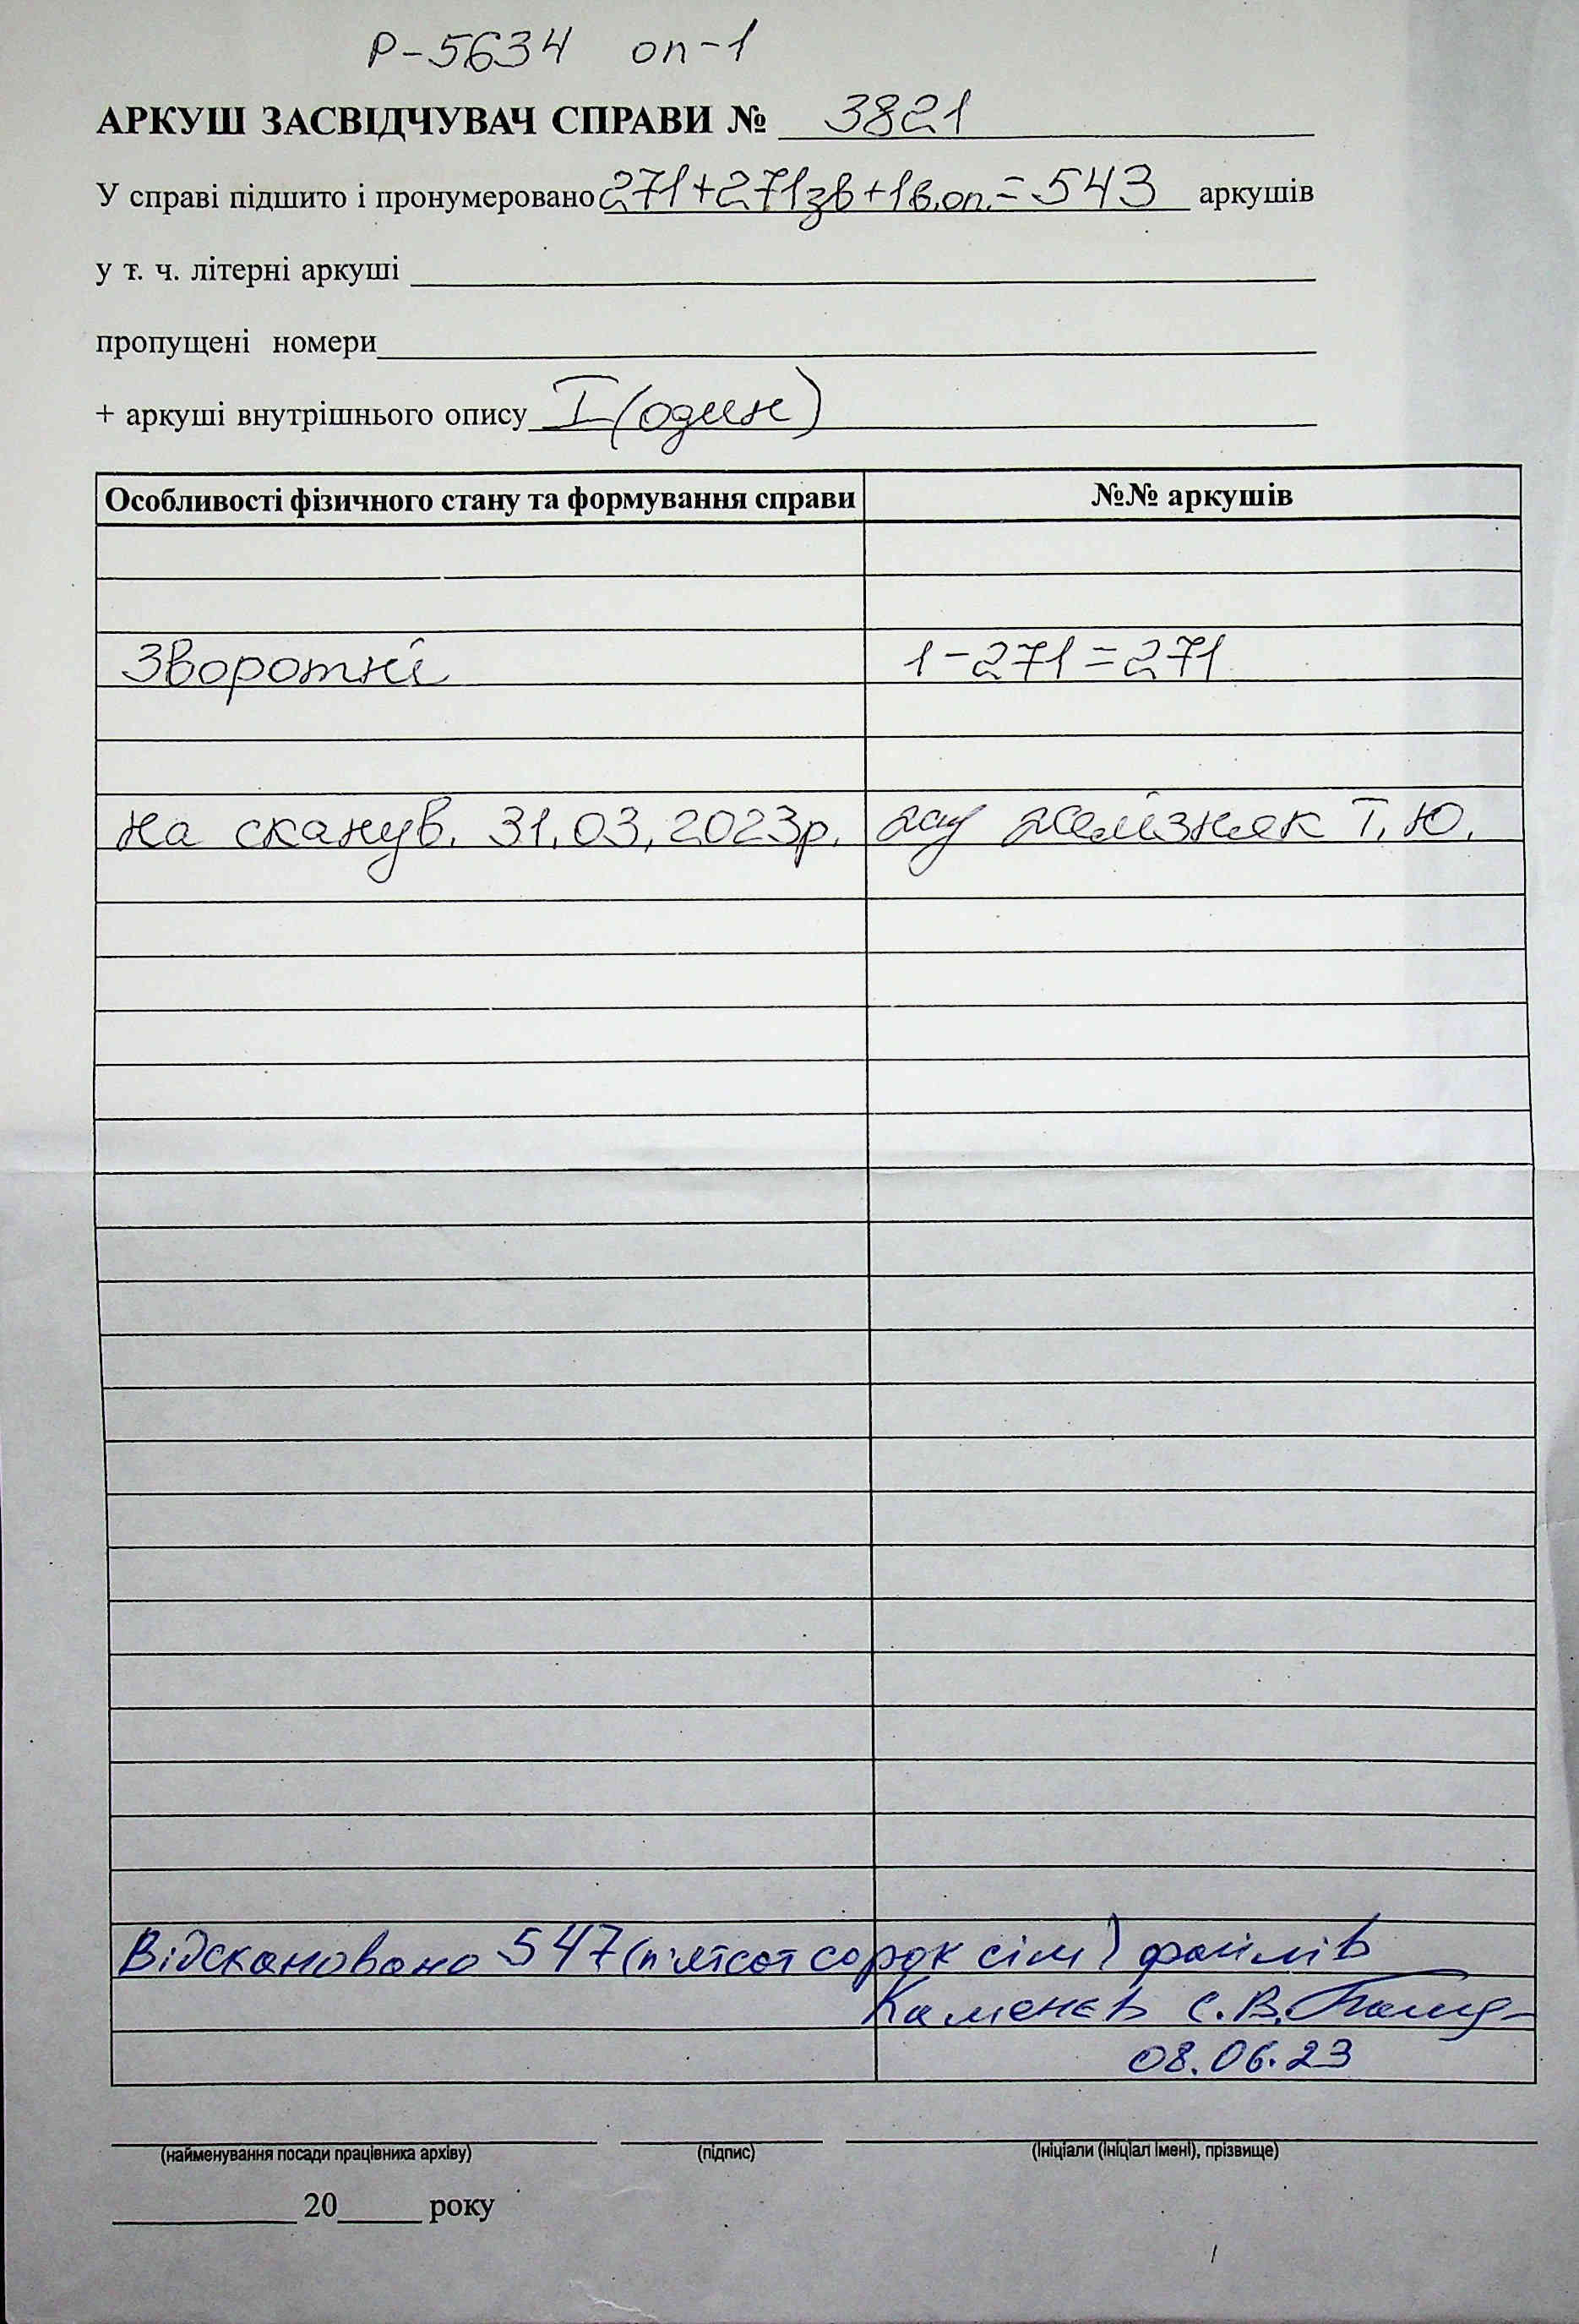 Р-5634 оп-1
АРКУШ ЗАСВІДЧУВАЧ СПРАВИ № 3821
У справі підшито і пронумеровано 271+271зв+1в.оп.=543 аркушів
у т. ч. літерні аркуші
пропущені номери
+ аркуші внутрішнього опису I (один)
Особливості фізичного стану та формування справи №№ аркушів
Зворотні 1-271=271
на сканув. 31.03.2023р. Желізняк Т.Ю.
Відскановано 547 (п'ятсот сорок сім) файлів
Каменєв С.В.
08.06.23
(найменування посади працівника архіву) (підпис) (ініціали (ініціал імені), прізвище)
20 року